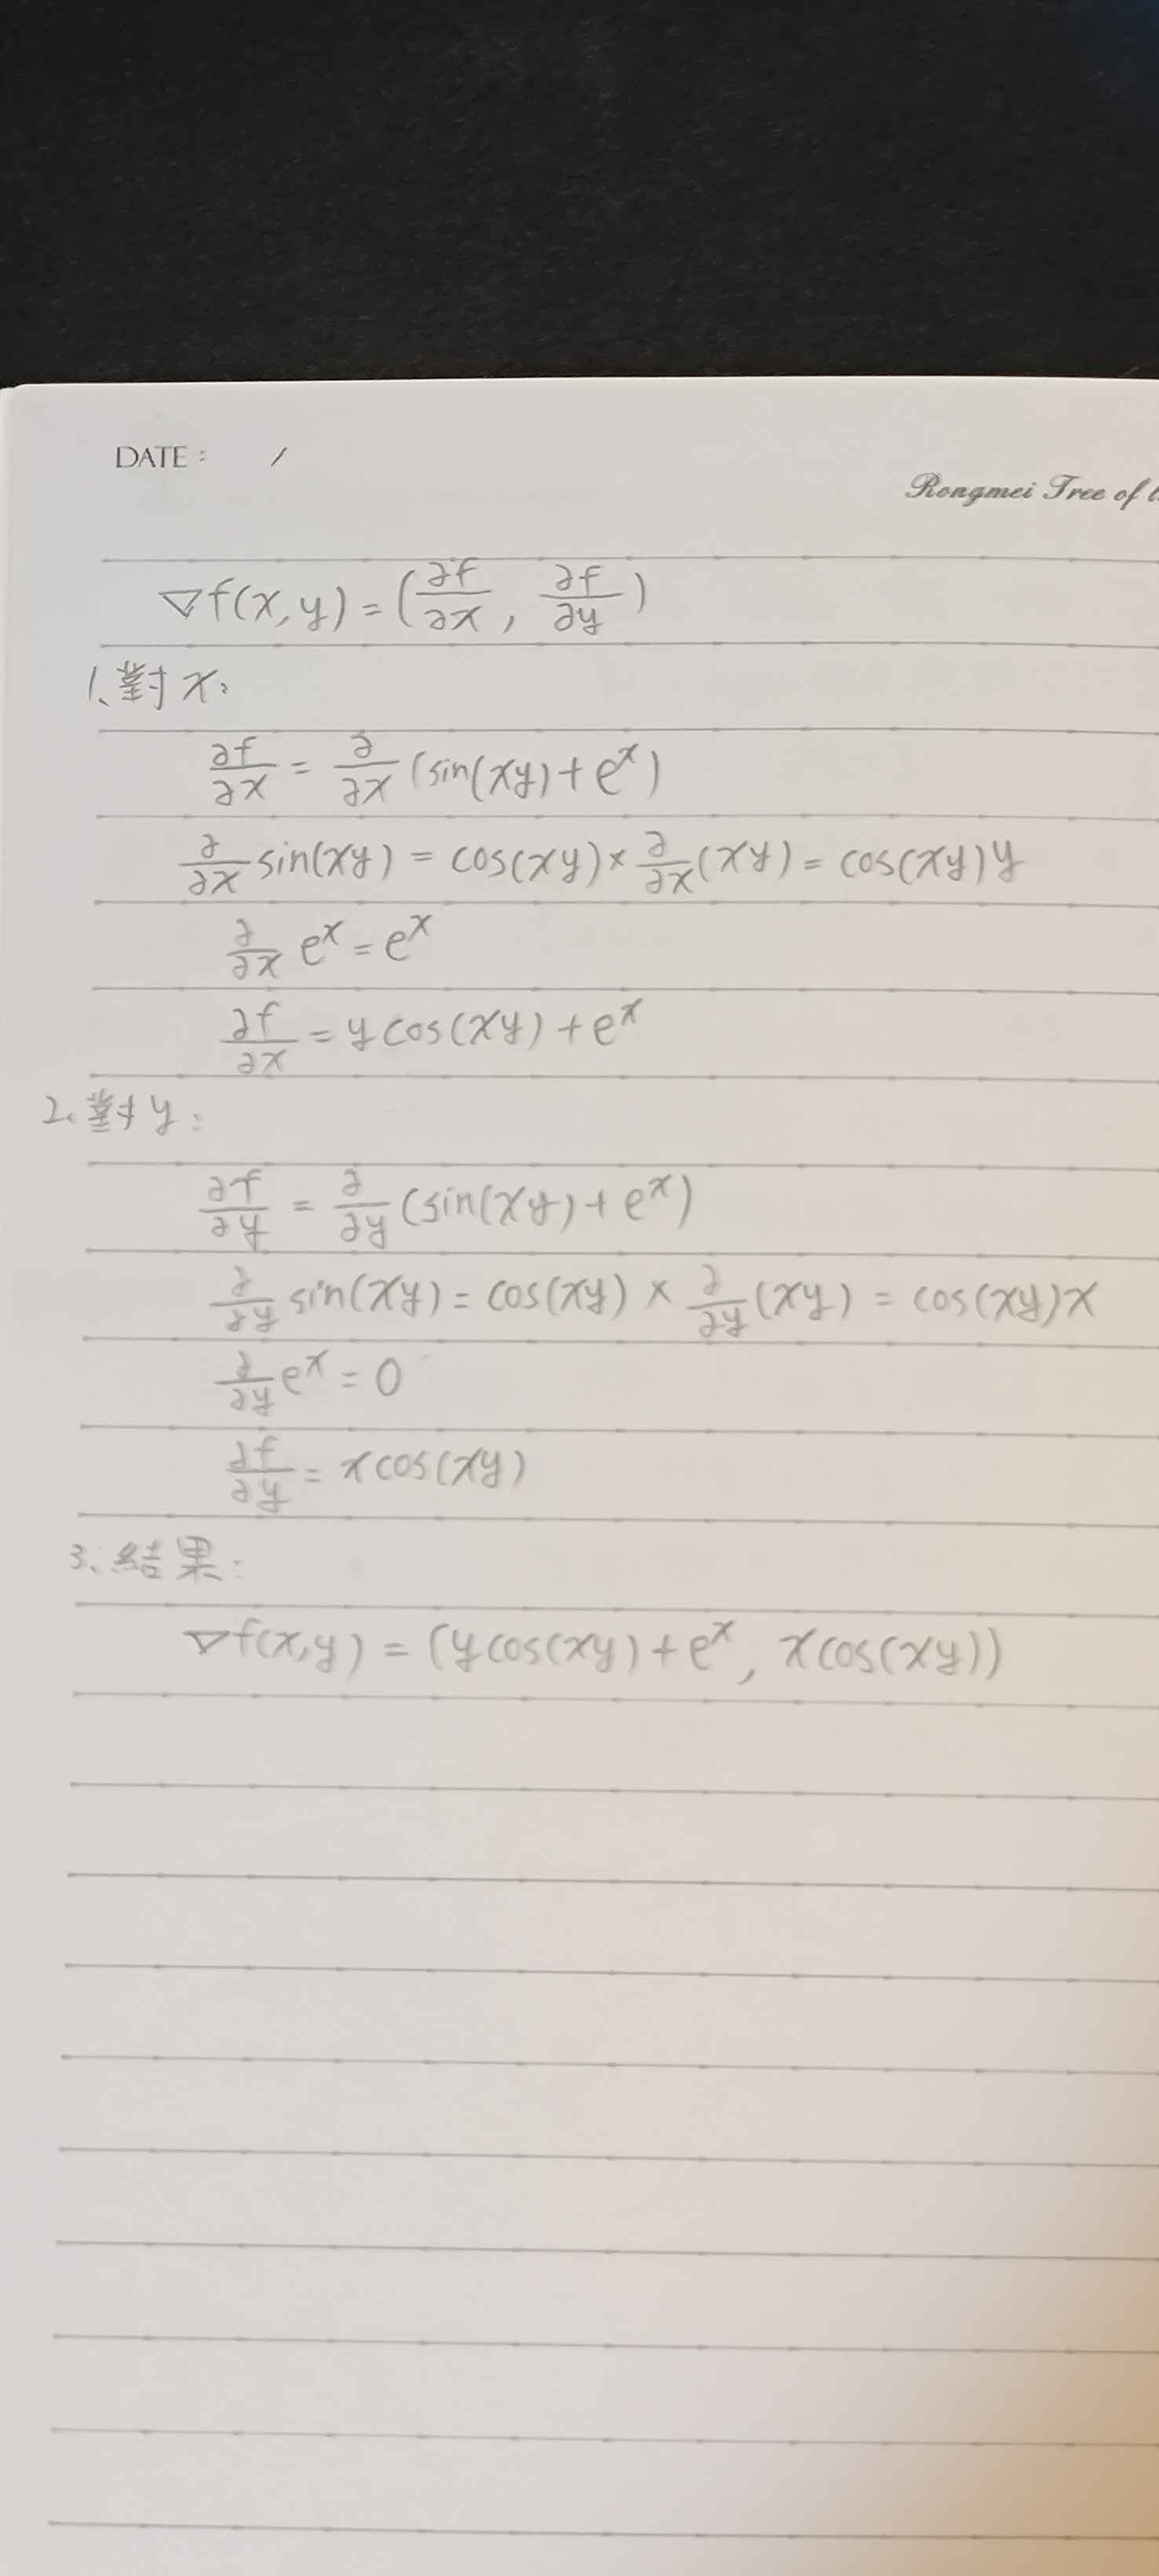 DATE : /
Rongmei Tree of
∇f(x,y)=(∂f/∂x, ∂f/∂y)
1、對x:
∂f/∂x = ∂/∂x (sin(xy)+e^x)
∂/∂x sin(xy) = cos(xy)×∂/∂x(xy) = cos(xy)y
∂/∂x e^x = e^x
∂f/∂x = y cos(xy)+e^x
2、對y:
∂f/∂y = ∂/∂y (sin(xy)+e^x)
∂/∂y sin(xy) = cos(xy) × ∂/∂y(xy) = cos(xy)x
∂/∂y e^x = 0
∂f/∂y = x cos(xy)
3、結果:
∇f(x,y) = (y cos(xy)+e^x, x cos(xy))